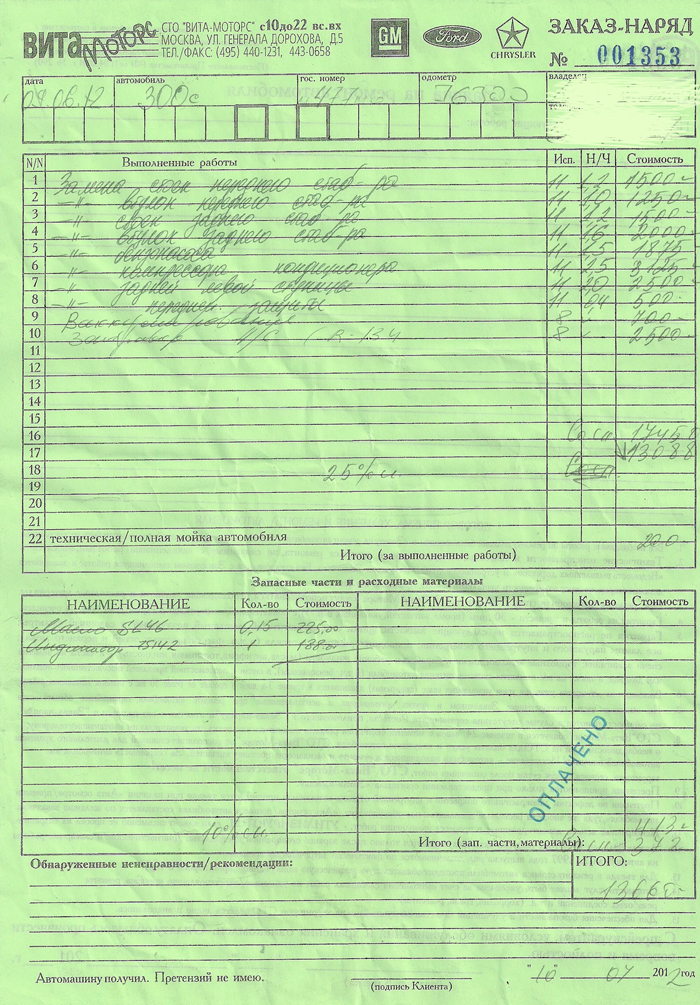 ВИТА МОТОРС СТО "ВИТА-МОТОРС" с10до22 вс.вх
МОСКВА, УЛ. ГЕНЕРАЛА ДОРОХОВА, Д.5
ТЕЛ./ФАКС: (495) 440-1231, 443-0658
GM Ford CHRYSLER
ЗАКАЗ-НАРЯД
№ 001353
дата автомобиль гос. номер одометр владелец
09.06.12 300c 76300
N/N Выполненные работы Исп. Н/Ч Стоимость
1 Замена стоек переднего стаб-ра 11 1,2 1500-
2 -"- втулок переднего стаб-ра 11 1,0 1250-
3 -"- стоек заднего стаб-ра 11 1,2 1500-
4 -"- втулок заднего стаб-ра 11 1,6 2000-
5 -"- 11 1,5 1875-
6 -"- компрессора кондиционера 11 2,5 3125-
7 -"- задней левой ступицы 11 2,0 2500-
8 -"- передней защиты 11 0,4 500-
9 Вакуумирование 8 700-
10 Заправка К/С (R-134 8 2500-
11
12
13
14
15
16 17458
17 13088
18 25%
19
20
21
22 техническая/полная мойка автомобиля 200-
Итого (за выполненные работы)
Запасные части и расходные материалы
НАИМЕНОВАНИЕ Кол-во Стоимость НАИМЕНОВАНИЕ Кол-во Стоимость
Масло SL46 0,15 225,00
Индикатор 15142 1 188.00
ОПЛАЧЕНО
10% 413-
Итого (зап. части,материалы): 372
Обнаруженные неисправности/рекомендации: ИТОГО:
13660-
Автомашину получил. Претензий не имею.
(подпись Клиента)
"10" 07 2012 год